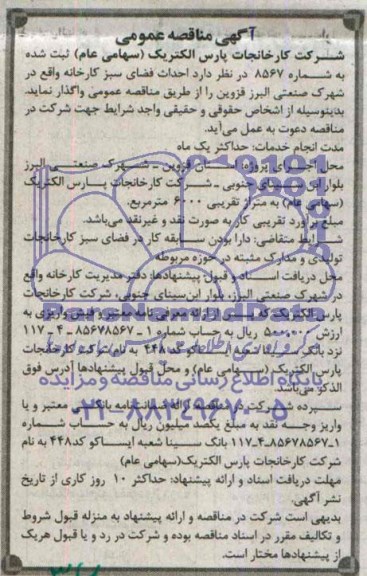 آگهی مناقصه عمومی
شرکت کارخانجات پارس الکتریک (سهامی عام) ثبت شده
به شماره ۸۵۶۷ در نظر دارد احداث فضای سبز کارخانه واقع در
شهرک صنعتی البرز قزوین را از طریق مناقصه عمومی واگذار نماید.
بدینوسیله از اشخاص حقوقی و حقیقی واجد شرایط جهت شرکت در
مناقصه دعوت به عمل می‌آید.
مدت انجام خدمات: حداکثر یک ماه
محل اجرای پروژه: قزوین - شهرک صنعتی البرز
بلوار ابن سینای جنوبی - شرکت کارخانجات پارس الکتریک
(سهامی عام) به متراژ تقریبی ۶۰۰۰ مترمربع.
مبلغ برآورد تقریبی کار به صورت نقد و غیرنقد می‌باشد.
شرایط متقاضی: دارا بودن سابقه کار در فضای سبز کارخانجات
تولیدی و مدارک مثبته در حوزه مربوطه
محل دریافت اسناد و قبول پیشنهادها: دفتر مدیریت کارخانه واقع
در شهرک صنعتی البرز، بلوار ابن‌سینای جنوبی، شرکت کارخانجات
پارس الکتریک که پس از ارائه معرفی نامه معتبر و فیش واریزی به
ارزش ۵۰۰,۰۰۰ ریال به حساب شماره ۱-۸۵۶۷۸۵۶۷-۴-۱۱۷
نزد بانک سینا شعبه ایساکو کد ۴۴۸ به نام شرکت کارخانجات
پارس الکتریک (سهامی عام) و محل قبول پیشنهادها آدرس فوق
الذکر می‌باشد.
پایگاه اطلاع رسانی مناقصه و مزایده
سپرده شرکت در مناقصه: ارائه ضمانتنامه بانکی معتبر و یا
۰۲۱-۸۸۳۴۹۶۷۰-۵
واریز وجه نقد به مبلغ یکصد میلیون ریال به حساب شماره
۱-۸۵۶۷۸۵۶۷-۴-۱۱۷ بانک سینا شعبه ایساکو کد ۴۴۸ به نام
شرکت کارخانجات پارس الکتریک(سهامی عام)
مهلت دریافت اسناد و ارائه پیشنهاد: حداکثر ۱۰ روز کاری از تاریخ
نشر آگهی
بدیهی است شرکت در مناقصه و ارائه پیشنهاد به منزله قبول شروط
و تکالیف مقرر در اسناد مناقصه بوده و شرکت در رد و یا قبول هریک
از پیشنهادها مختار است.